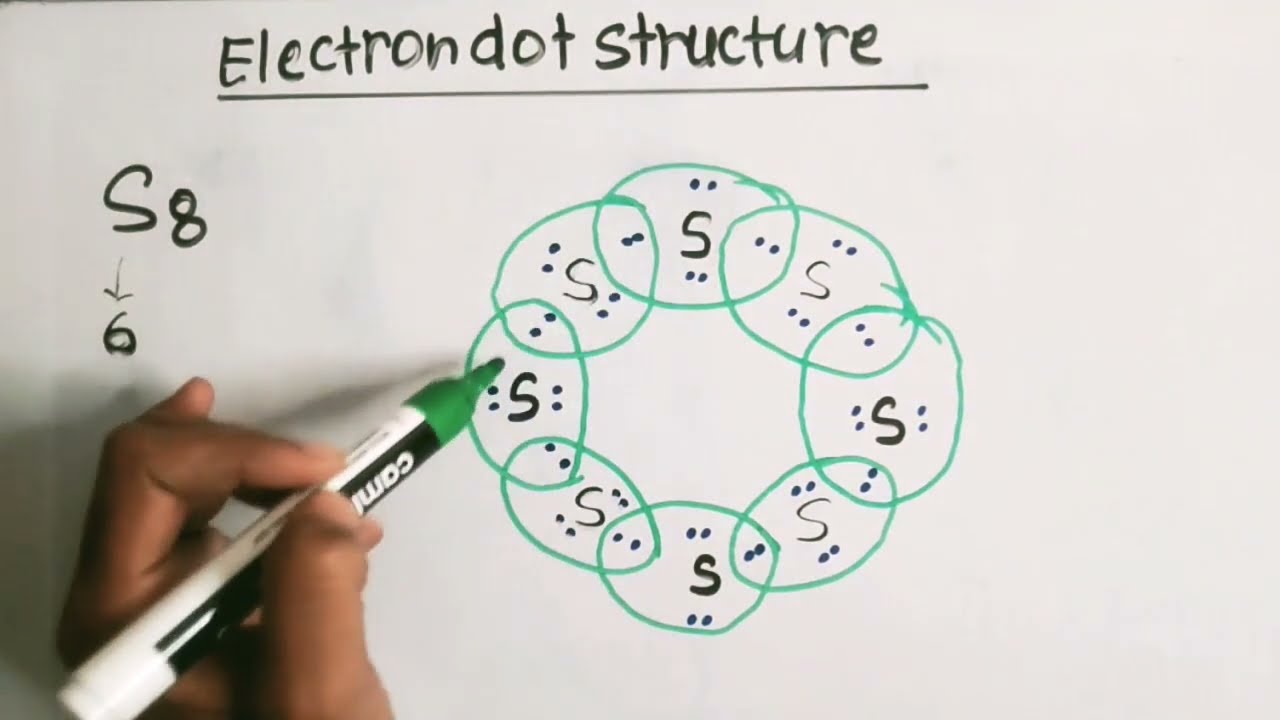 Electron dot structure
S8
↓
6
S
S
S
S
S
S
S
S